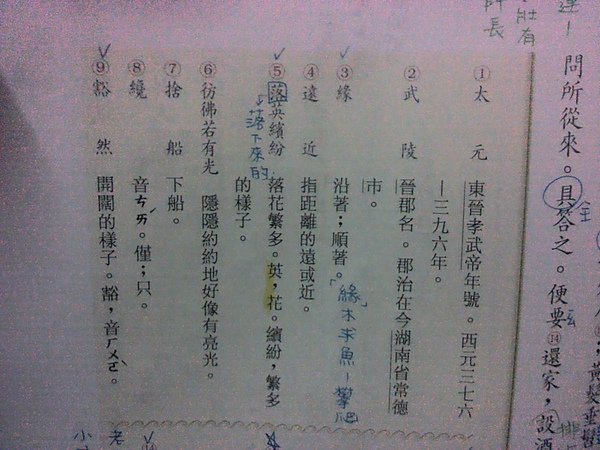 黃髮垂髫
問所從來。具答之。便要⑭還家,設酒
全
壯有
師長
①太元 東晉孝武帝年號。西元三七六
—三九六年。
②武陵 晉郡名。郡治在今湖南省常德
市。
③緣 沿著;順著。「緣」木求魚-攀爬
④遠近 指距離的遠或近。
⑤落英繽紛 落花繁多。英,花。繽紛,繁多
的樣子。
落下來的
⑥彷彿若有光 隱隱約約地好像有亮光。
⑦捨船 下船。
⑧纔 音ㄘㄞˊ。僅;只。
⑨豁然 開闊的樣子。豁,音ㄏㄨㄛˋ。